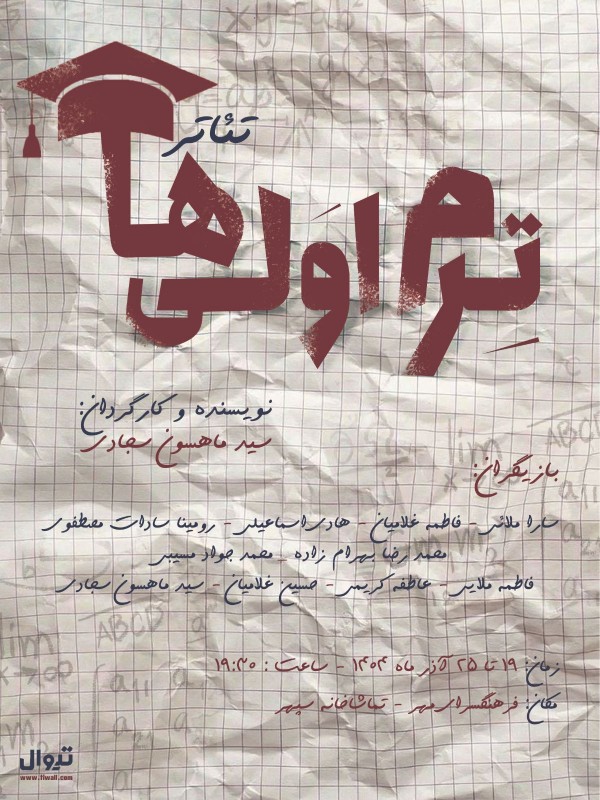 تئاتر
ترم اولی ها
نویسنده و کارگردان:
سید ماهسون سجادی
بازیگران:
سارا ملائی - فاطمه غلامیان - هادی اسماعیلی - رومینا سادات مصطفوی
محمد رضا بهرام زاده - محمد جواد مسیبی
فاطمه ملایی - عاطفه کریمی - حسین غلامیان - سید ماهسون سجادی
زمان: ۱۹ تا ۲۵ آذر ماه ۱۴۰۴ - ساعت: ۱۹:۳۰
مکان: فرهنگسرای مهر - تماشاخانه سپهر
تیوال
www.tiwall.com